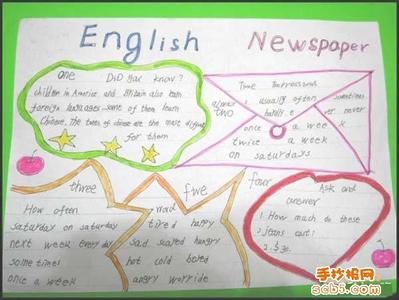 English Newspaper
one Did You know?
children in America and Britain also learn
foreign languages some of them learn
Chinese. The tones of chinese are the most difficult
for them
Time Expressions
always usually often sometimes
TWO hardly ever never
once a week
twice a week
on saturdays
three
How often
saturday on saturday
next week every day
sometimes
once a week
five
word
tired happy
sad scared hungry
hot cold bored
angry worride
four Ask and
answer
1. How much do these
2. Jeans cost?
手抄报网
scb5.com